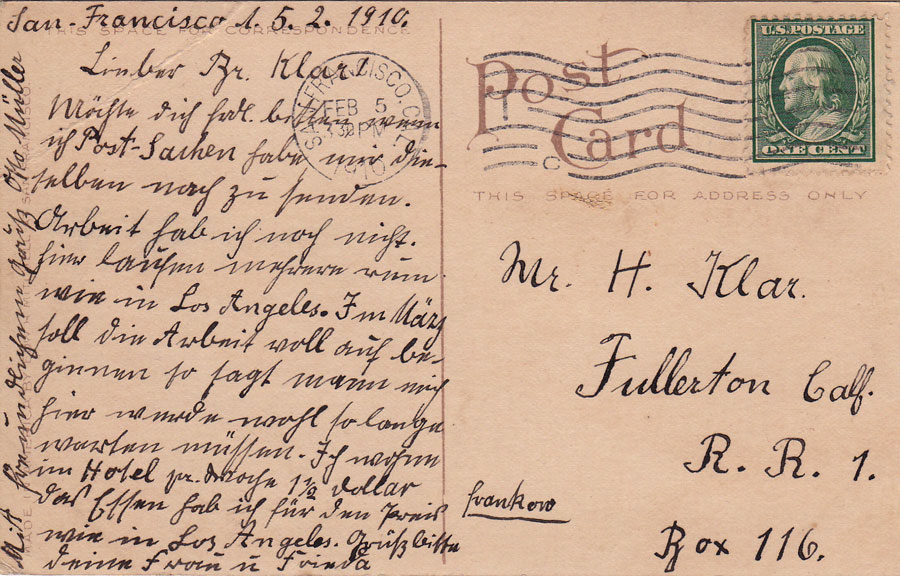 San-Francisco d. 5. 2. 1910.
THIS SPACE FOR CORRESPONDENCE
Lieber Br. Klar!
Möchte dich höfl. bitten wenn
ich Post-Sachen habe mir die-
selben nach zu senden.
Arbeit hab ich noch nicht.
hier laufen mehrere rum
wie in Los Angeles. Im März
soll die Arbeit voll auf be-
ginnen so sagt mann mich
hier werde wohl so lange
warten müssen. Ich wohne
im Hotel pr. Woche 1½ Dollar
das Essen hab ich für den Preis
wie in Los Angeles. Grüß bitte
deine Frau u Frieda
Mit freundlichen Gruß Otto Müller
SAN FRANCISCO, CAL.
FEB 5
3 30 PM
1910
Post
Card
U.S. POSTAGE
ONE CENT
THIS SPACE FOR ADDRESS ONLY
Mr. H. Klar.
Fullerton Calf.
R. R. 1.
Box 116.
frankow